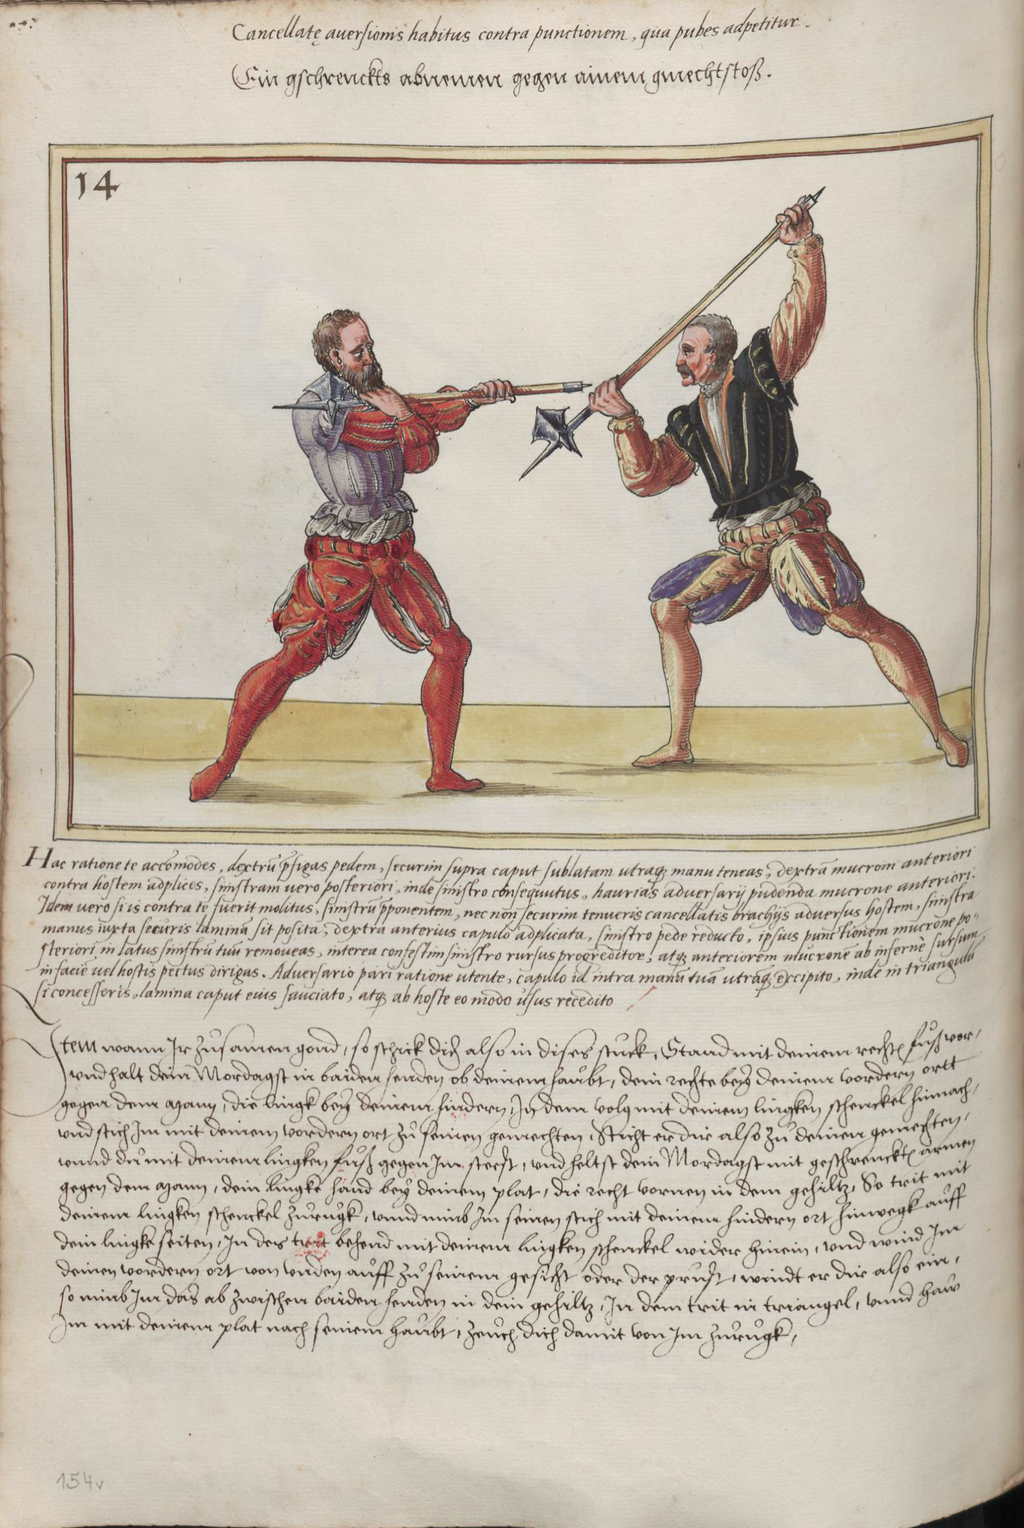 Cancellatę auersionis habitus contra punctionem, qua pubes adpetitur.
Ein gschrenckts abnemen gegen ainem gmechtstoß.
14
Hac ratione te accōmodes, dextrū p̄figas pedem, securim supra caput sublatam utraq; manu teneas, dextrā mucroni anteriori
contra hostem adplices, sinistram uero posteriori, inde sinistro consequutus, haurias aduersarij pudenda mucrone anteriori.
Idem uero si is contra te fuerit molitus, sinistrū p̄ponentem, nec nōn securim tenueris cancellatis brachijs aduersus hostem, sinistra
manus iuxta securis lamina sit posita, dextra anterius capulo adplicata, sinistro pede reducto, ipsius punctionem mucrone po-
steriori in latus sinistrū tuū remoueas, interea confestim sinistro rursus progreditor, atq; anteriorem mucronē ab infernē sursum
in faciē uel hostis pectus dirigas. Aduersario pari ratione utente, capulo id intra manū tuā utrāq; excipito, inde in triangulū
si concesseris, lamina caput eius sauciato, atq; ab hoste eo modo usus recedito
Item wann Ir zusamen gond, so schick dich also in dises stuck, Stand mit deinem rechtē fuß vor,
vnd halt dein Mordagst in baiden henden ob deinem haubt, dein rechte bey deinem vordern ortt
gegen dem mann, die lingk bey deinem hindern, In dem volg mit deinem lingken schenckel hinnach,
vnd stich Im mit deinem vordern ort zu seinen gemechten, Sticht er dir also zu deinen gemechten,
vnnd du mit deinem lingken fuß gegen Im steest, vnd heltst dein Mordagst mit geschrencktē armen
gegen dem mann, dein lingke hand bey deinem plat, die recht vornen in dem gehiltz, So trit mit
deinem lingken schenckel zurugk, vnnd nimb Im seinen stich mit deinem hindern ort hinwegk auff
dein lingke seiten, In des trit behend mit deinem lingken schenckel wider hinein, vnd wind Im
deinen vordern ort von vnden auff zu seinem gesicht oder der prust, windt er dir also ein,
so nimb Im das ab zwischen baiden henden in dein gehiltz, In dem trit in triangel, vnnd haw
Im mit deinem plat nach seinem haubt, zeuch dich damit von Im zurugk,
154v